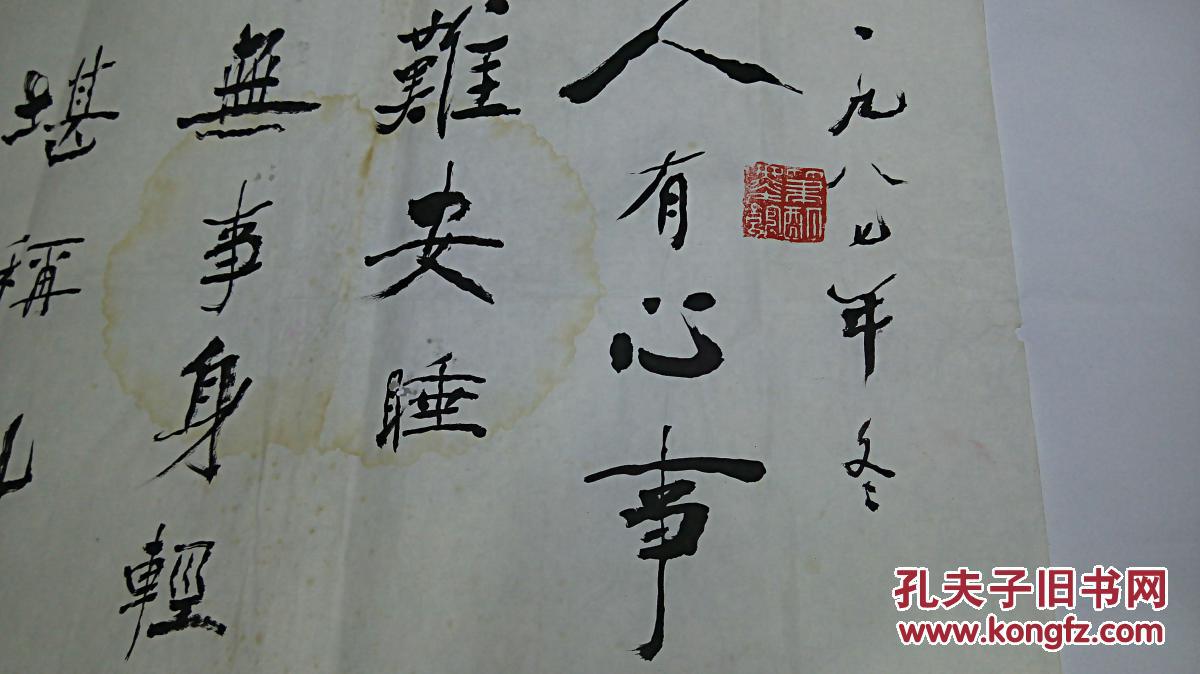 一九八七年冬
人有心事
難安睡
無事身輕
堪稱
孔夫子旧书网
www.kongfz.com